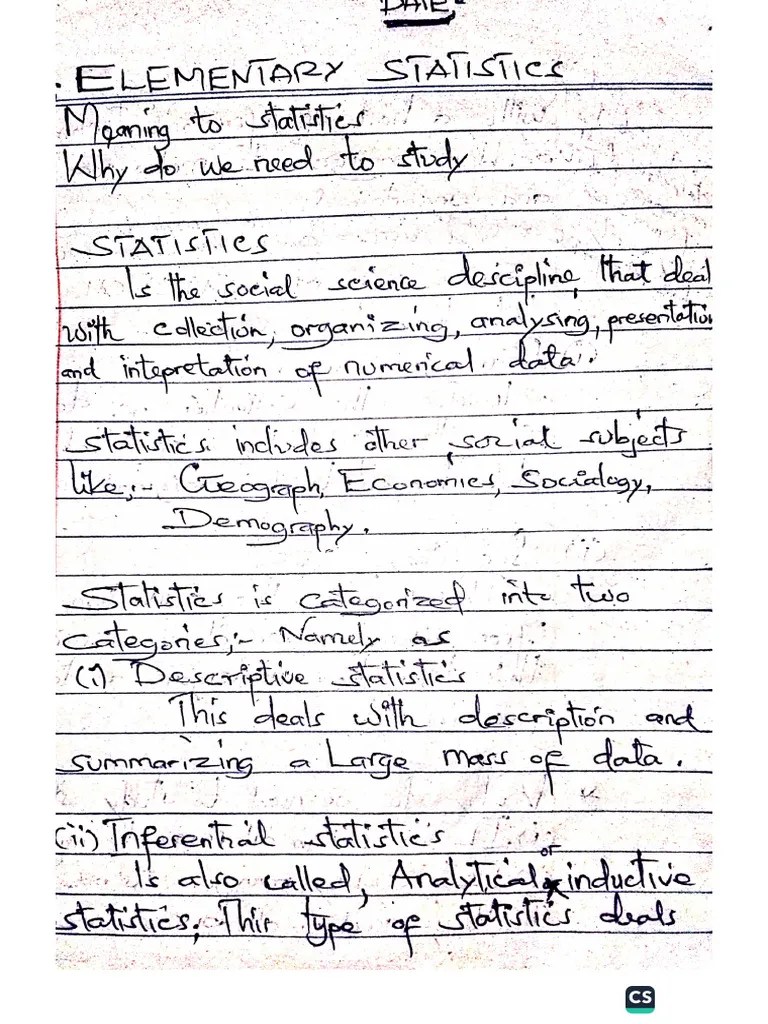 DATE:
. ELEMENTARY STATISTICS
Meaning to statistics
Why do we need to study
STATISTICS
Is the social science descipline, that deal
with collection, organizing, analysing, presentation
and intepretation of numerical data.
Statistics includes other social subjects
like;- Geograph, Economics, Sociology,
Demography.
Statistics is categorized into two
categories;- Namely as
(i) Descriptive statistics
This deals with description and
summarizing a Large mass of data.
(ii) Inferential statistics
or
Is also called, Analytical inductive
statistics. This type of statistics deals
CS